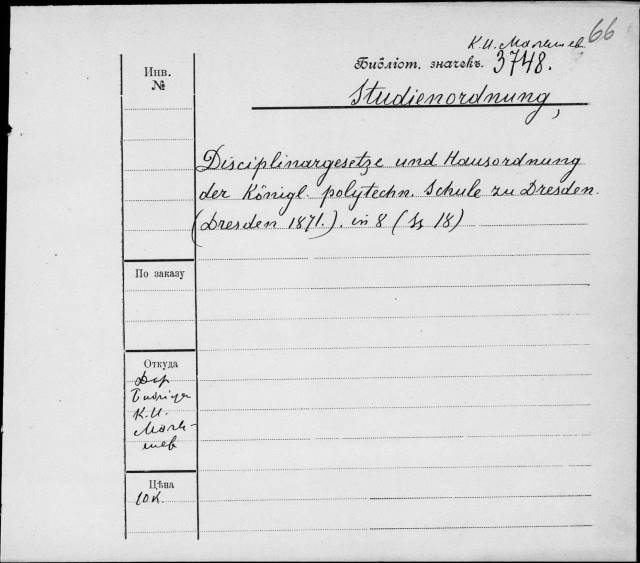 66
К.И. Малышев
Библіот. значекъ 3748.
Studienordnung,
Инв.
№
Disciplinargesetze und Hausordnung
der Königl. polytechn. Schule zu Dresden.
(Dresden 1871.). in 8 (
18)
По заказу
Откуда
К.И.
Малы-
шев
Цѣна
10к.